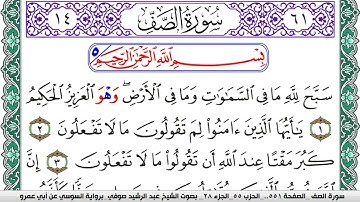 ٦١ سُورَةُ الصَّفِّ ١٤
بِسْمِ اللَّهِ الرَّحْمَٰنِ الرَّحِيمِ
سَبَّحَ لِلَّهِ مَا فِي السَّمَٰوَٰتِ وَمَا فِي الْأَرْضِ وَهْوَ الْعَزِيزُ الْحَكِيمُ
١ يَٰأَيُّهَا الَّذِينَ ءَامَنُوا لِمَ تَقُولُونَ مَا لَا تَفْعَلُونَ ٢
كَبُرَ مَقْتًا عِندَ اللَّهِ أَن تَقُولُوا مَا لَا تَفْعَلُونَ ٣
سورة الصف الصفحة ٥٥١ الحزب ٥٥ الجزء ٢٨ بصوت الشيخ عبد الرشيد صوفي برواية السوسي عن أبي عمرو